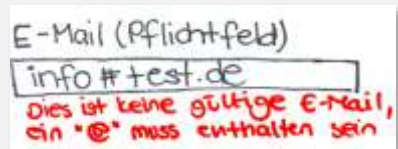 E-Mail (Pflichtfeld)
info#test.de
Dies ist keine gültige E-Mail,
ein "@" muss enthalten sein